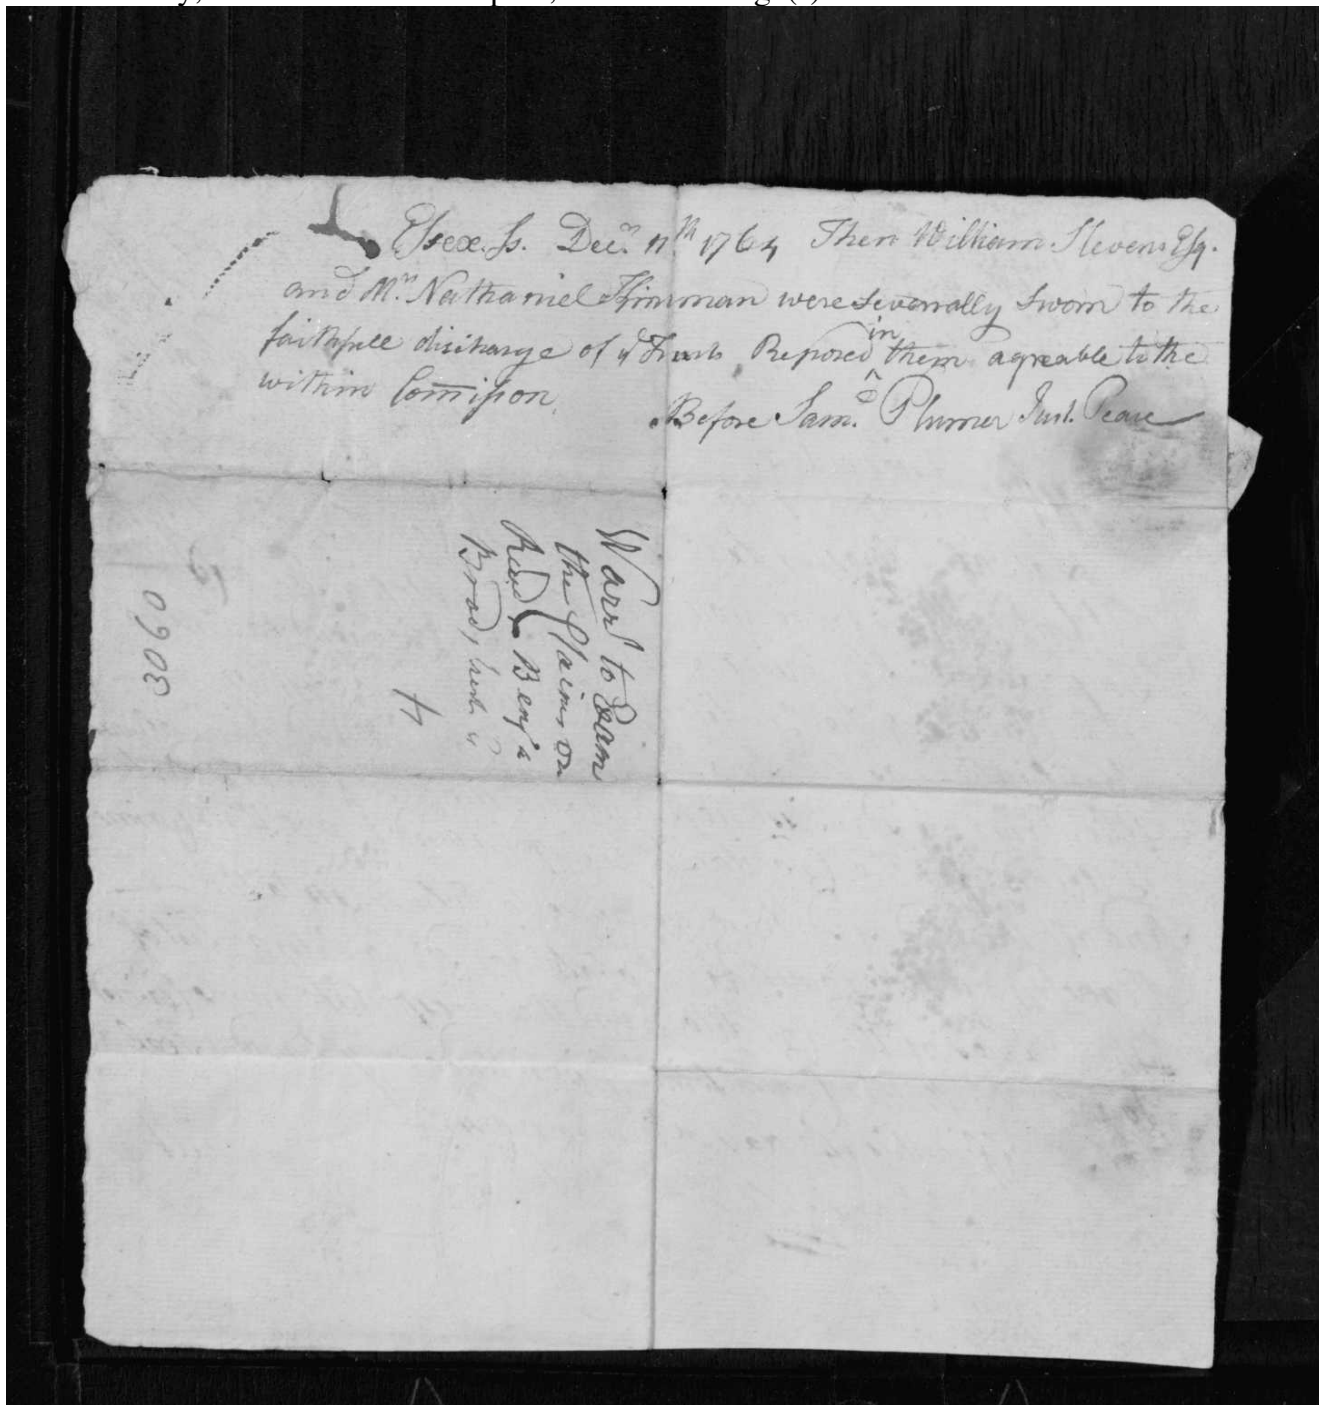 Essex ss. Decr. 11th 1764 Then William Stevens Esq.
and Mr. Nathaniel Kinsman were severally sworn to the
faithfull discharge of ye Trust Reposed in them agreable to the
within Com̅ission.
Before Saml. Plumer Just. Peace
Warrt to Exam
the Claims on
Benja
Brad
4
3060